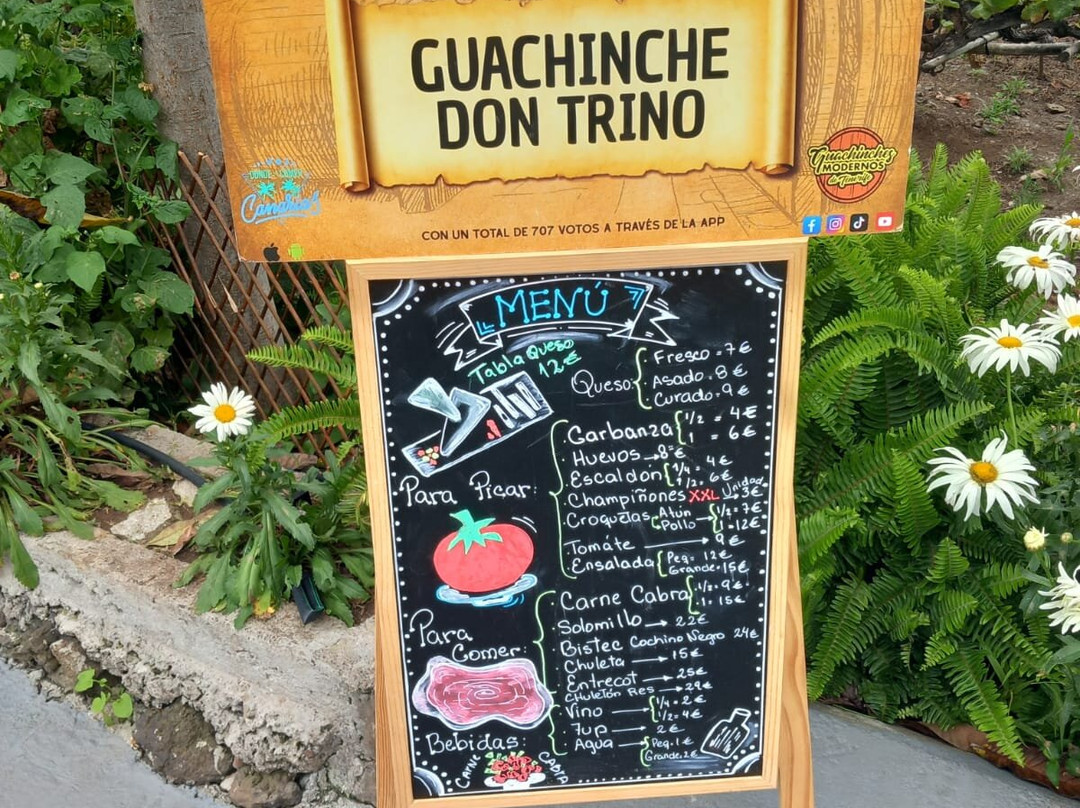 GUACHINCHE
DON TRINO
DONDE COMER
Canarias
Guachinches
MODERNOS
de Tenerife
CON UN TOTAL DE 707 VOTOS A TRAVÉS DE LA APP
MENÚ
Tabla Queso
12€
Queso:
Fresco = 7€
Asado = 8€
Curado = 9€
Para Picar:
Garbanza 1/2 = 4€
1 = 6€
Huevos → 8€
Escaldón 1/4 = 4€
1/2 = 6€
Champiñones XXL Unidad → 3€
Croquetas Atún Pollo → 1/2 = 7€
1 = 12€
Tomáte → 9€
Ensalada Peq = 12€
Grande = 15€
Para Comer:
Carne Cabra 1/2 = 9€
1 = 15€
Solomillo → 22€
Bistec Cochino Negro 24€
Chuleta → 15€
Entrecot → 25€
Chuletón Res → 29€
Bebidas:
Vino → 1/4 = 2€
1/2 = 4€
7up → 2€
Agua → Peq. 1€
Grande. 2€
CARNE CABRA